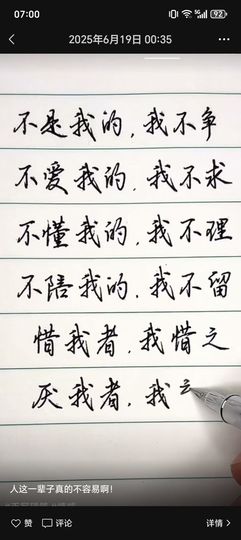 07:00
5G
92
2025年6月19日 00:35
不是我的，我不争
不爱我的，我不求
不懂我的，我不理
不陪我的，我不留
惜我者，我惜之
厌我者，我
人这一辈子真的不容易啊！
赞
评论
详情